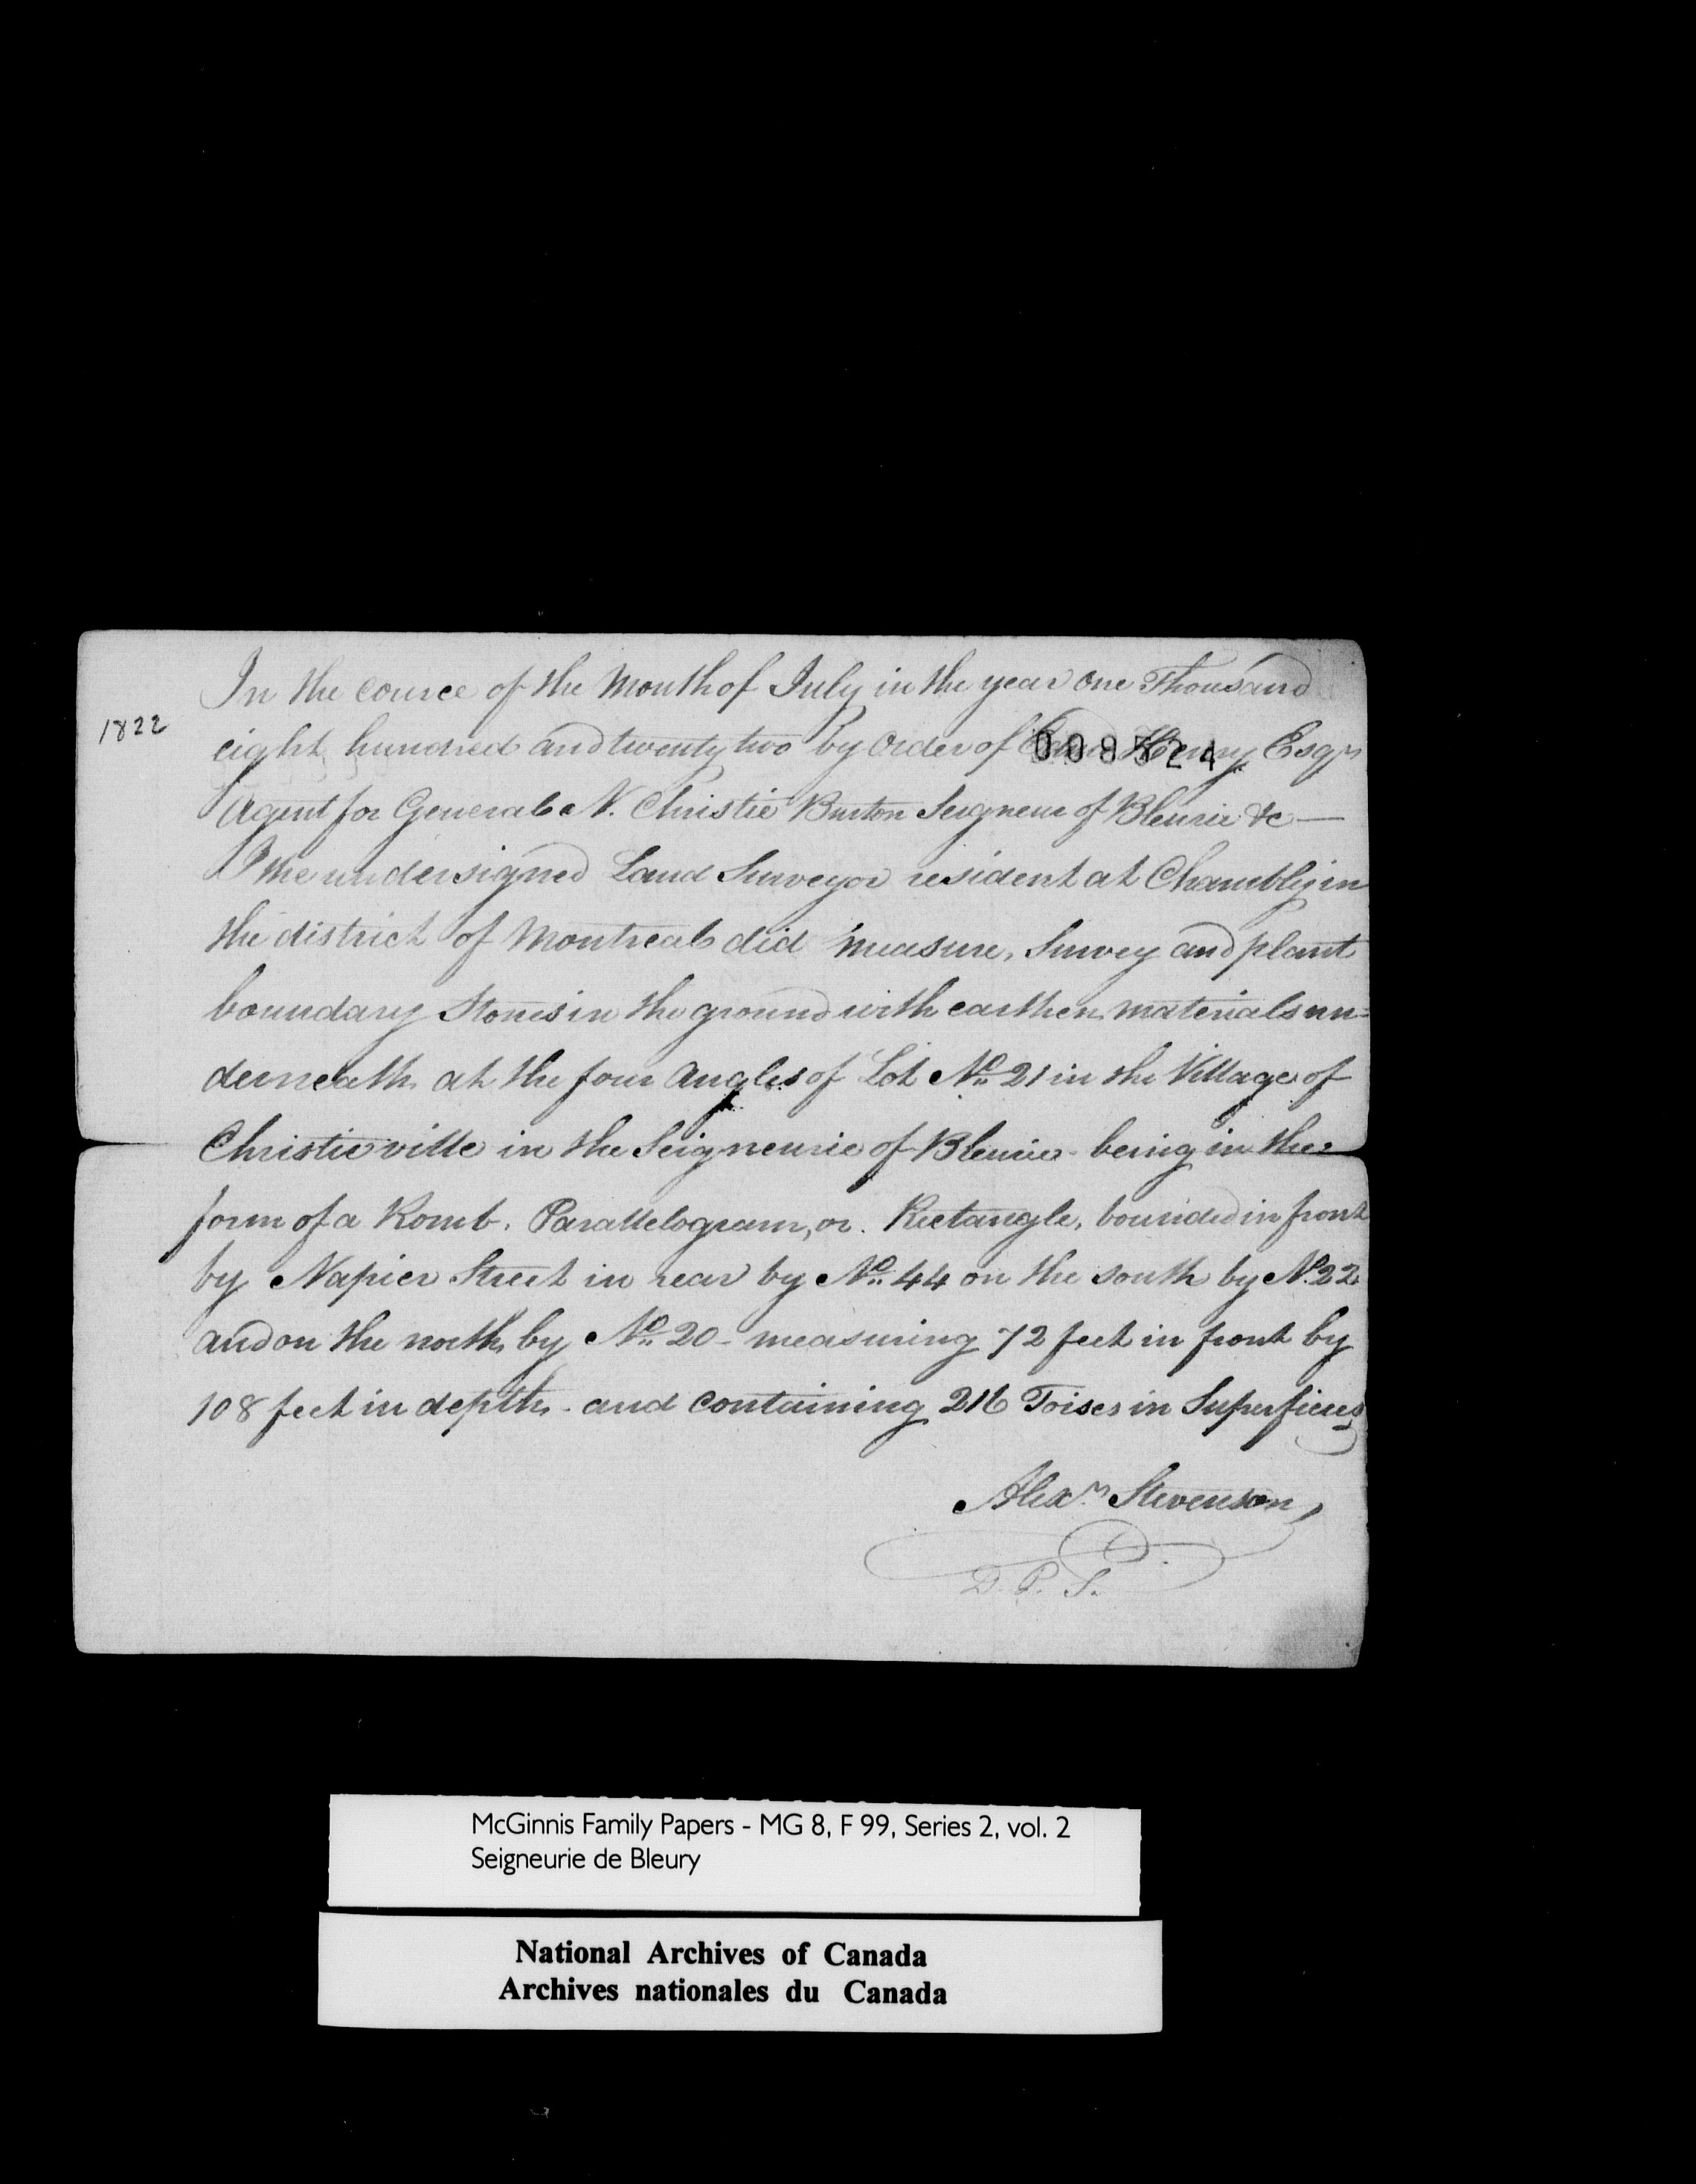 In the cource of the Month of July in the year one Thousand
1822
eight hundred and twenty two by Order of Henry Esqr
008524
Agent for General N. Christie Burton Seigneur of Bleurie &c —
I the undersigned Land Surveyor resident at Chambly in
the district of Montreal did measure, Survey and plant
boundary Stones in the ground with earthen materials un=
derneath at the four Angles of Lot No. 21 in the Village of
Christieville in the Seigneurie of Bleurie - being in the
form of a Romb. Parallelogram, or. Rectangle, bounded in front
by Napier Street in rear by No. 44 on the south by No. 22
and on the north by No. 20 - measuring 72 feet in front by
108 feet in depth - and containing 216 Toises in Superficies
Alexr. Stevenson
D. P. S.
McGinnis Family Papers - MG 8, F 99, Series 2, vol. 2
Seigneurie de Bleury
National Archives of Canada
Archives nationales du Canada